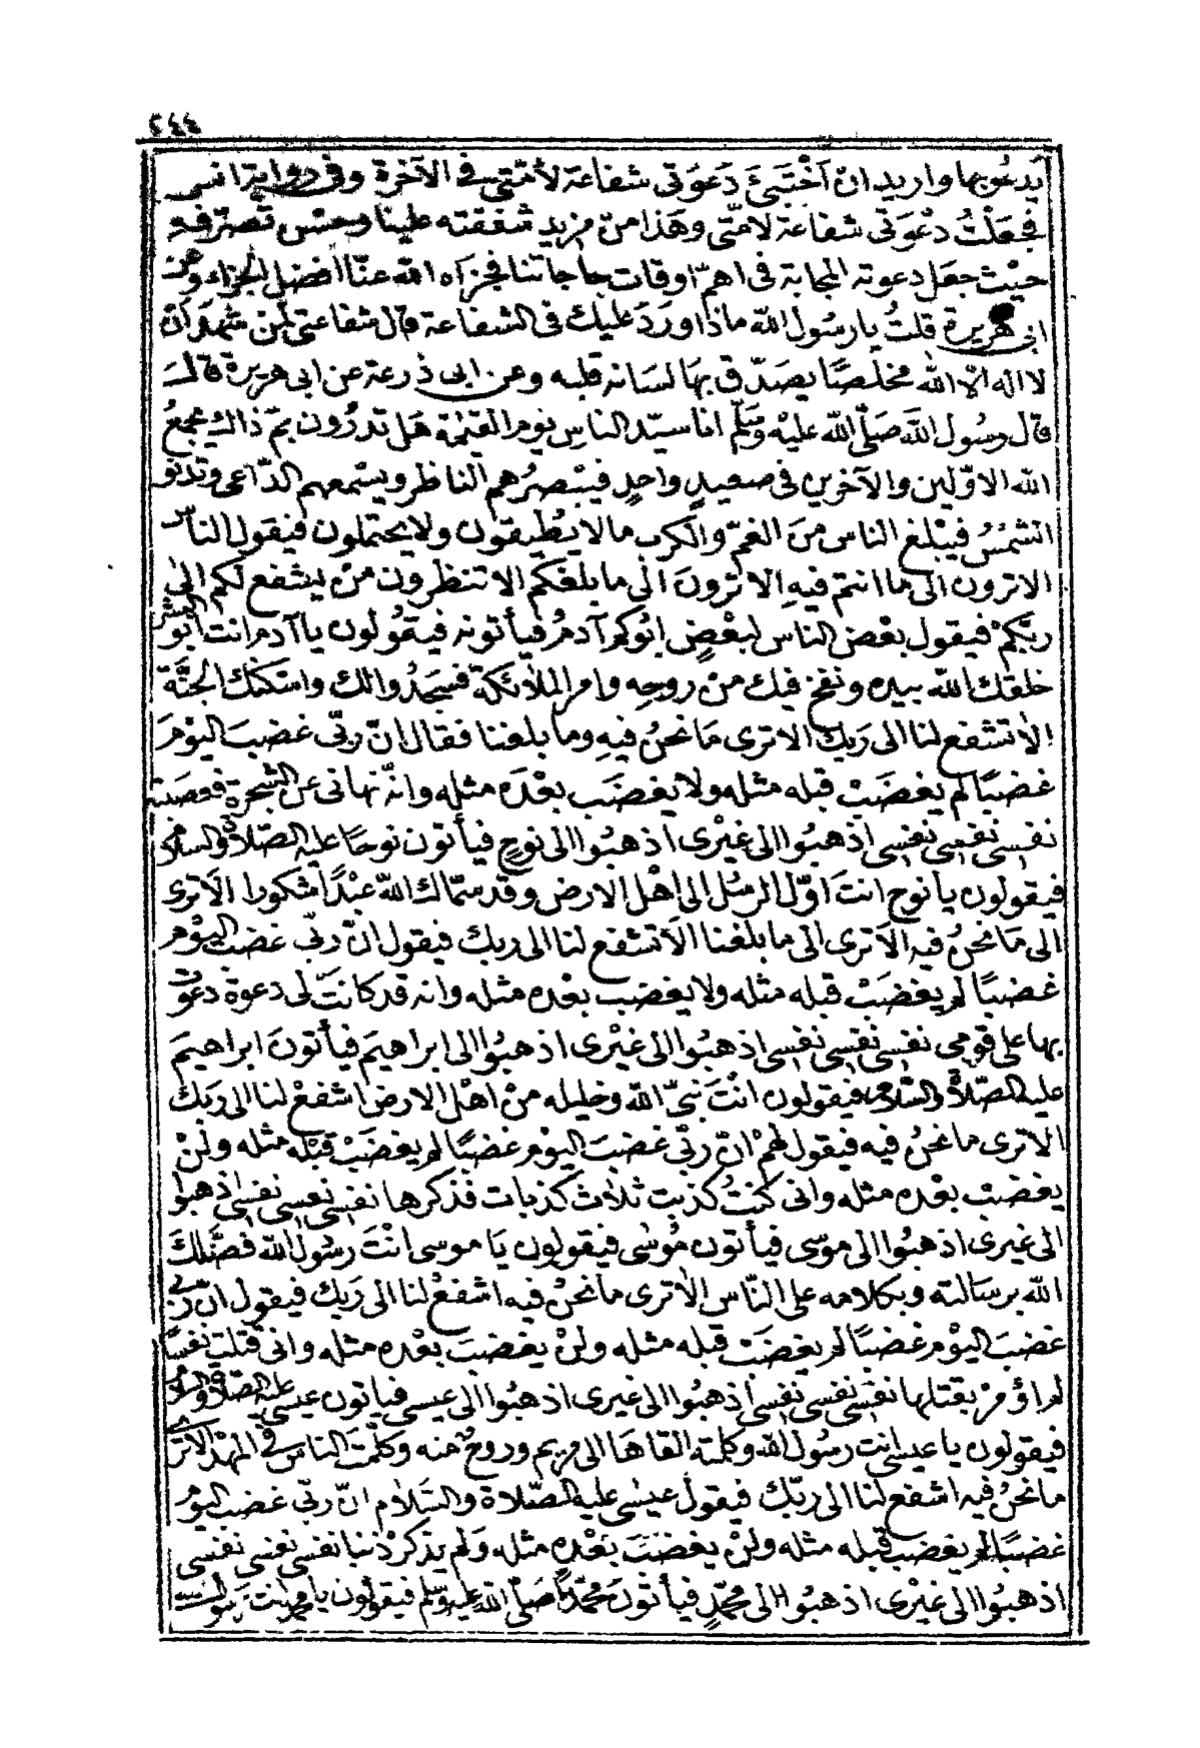 ٢٤٤
يدعو بها واريد ان اَخْتَبِئَ دَعَوَتى شفاعة لأمّتى فى الآخرة وفى رواية انس
فجعَلْتُ دعْوَتى شفاعة لامّتى وهَذا منْ مزيد شفقته علينا وحسْن تصرّفه
حيْث جعَل دعوته المجابة فى اهمّ اوقات حاجاتنا فجزاه الله عنّا افضل الجزاء وعن
ابى هريرة قلتُ يا رسُول اللّه ماذا وَرَدَ عليك فى الشفاعة قال شفاعتى لمن شهد أن
لا اله الّا اللّه مخلصًا يصَدّق بهَا لسَانه قلبه وعن ابى ذرعة عن ابى هريرة قال
قال رسُول اللّه صَلّى اللّه عليْه وسَلّم انا سيّد الناس يوْم القيٰمة هَل تدْرُون بمَ ذاك يجمعُ
اللّه الاوّلين والآخرين فى صعيدٍ واحدٍ فيبْصرُهم الناظر ويسْمعهم الدّاعى وتدنو
الشمْسُ فيبْلغ الناس منَ الغمّ والكرب مالا يُطيقون ولا يحتملون فيقول الناس
الا ترون الى ما انتم فيهِ الا ترونَ الى ما بلغكم الا تنظرون منْ يشفع لكم الىٰ
ربّكمْ فيقول بعْض الناس لبعْضٍ ابُوكم آدمُ فيأتونه فيقُولون يا آدم انت ابو البشر
خلقك اللّه بيده ونفخ فيك منْ روحِه وامر الملائكة فسَجَدُوا لك واسكنك الجنّة
الا تشفع لنا الى رَبك الا ترى مَا نحنُ فيهِ وما بلغنا فقال انّ ربّى غضبَ اليوْمَ
غضبًا لم يغضَبْ قبله مثله ولا يغضَب بعْدَه مثله وانّه نهانى عن الشجرة فعصيته
نفسى نفسى نفسى اذهبُوا الى غيْرى اذهبُوا الى نوحٍ فيأتون نوحًا عليه الصّلاة والسلام
فيقولون يا نوح انتَ اوّل الرسُل الى اهْل الارض وقد سمّاك اللّه عبْدًا شكورا الا ترى
الى مَا نحنُ فيه الا ترى الى ما بلغنا الا تشفع لنا الى ربك فيقول انّ ربّى غضبَ اليوْمَ
غضبًا لم يغضَبْ قبله مثله ولا يغضب بعْده مثله وانه قد كانت لى دعوة دعوْت
بها على قومى نفسى نفسى نفسى اذهبُوا الى غيْرى اذهبُوا الى ابراهيمَ فيأتونَ ابراهيمَ
عليه الصّلاة والسّلام فيقولون انْتَ نبىّ اللّه وخليله منْ اهْل الارض اشفعْ لنا الى رَبك
الا ترى ما نحنُ فيه فيقول لهمْ انّ ربّى غضبَ اليوْم غضبًا لم يغضَبْ قبْله مثله ولنْ
يغضبْ بعْده مثله وانى كنتُ كذبت ثلاث كذبات فذكرها نفسى نفسى نفسى اذهبوا
الى غيرى اذهبُوا الى موسى فيأتون مُوسٰى فيقولون يَا موسى انْتَ رسُول اللّه فضّلكَ
اللّه برسَالته وبكلامه على النّاس الا ترى ما نحنُ فيه اشفعْ لنا الى رَبك فيقول انّ ربى
غضبَ اليوْم غضبًا لم يغضَبْ قبله مثله ولنْ يغضبَ بعْده مثله وانى قتلت نفسًا
لم اؤمرْ بقتلها نفسى نفسى نفسى اذهبُوا الى غيرى اذهبُوا الى عيسى فيأتون عيسى عليه الصّلاة والسّلام
فيقولون يا عيسى انت رسُول اللّه وكلمته القاهَا الى مريم وروحٌ منه وكلّمْتَ الناس فى المهْد الا ترى
ما نحنُ فيه اشفع لنا الى ربّك فيقول عيسٰى عليه الصّلاة والسّلام انّ ربّى غضب اليوْم
غضبًا لم يغضب قبله مثله ولنْ يغضبَ بعْده مثله ولم يذكرْ ذنبا نفسى نفسى نفسى
اذهبُوا الى غيْرى اذهبُوا الى محمّدٍ فيأتونَ محمّدًا صَلّى اللّه عليه وسلم فيقولون يا محمد انت رسول